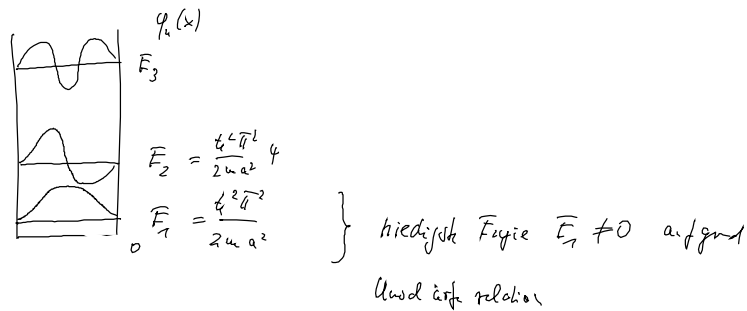 φₙ(x)
E₃
E₂ = ℏ²π²/2ma² 4
0 E₁ = ℏ²π²/2ma² } niedrigste Energie E₁ ≠ 0 aufgrund
Unschärferelation